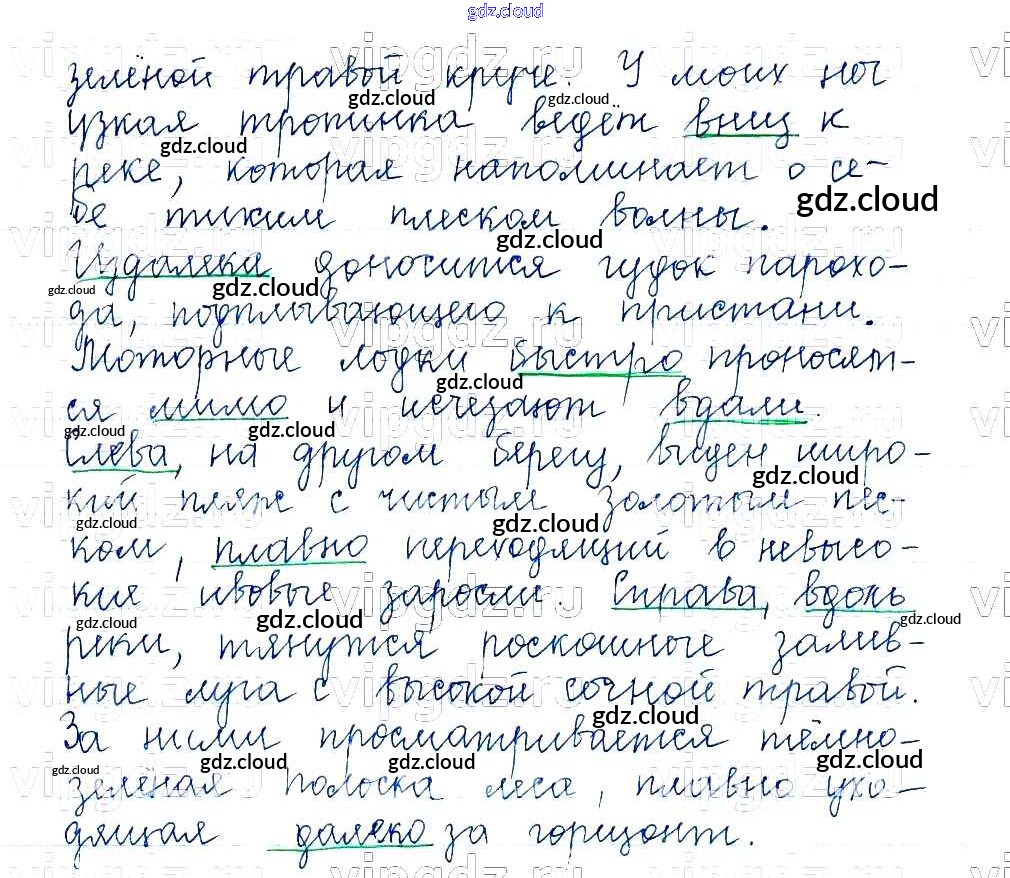 gdz.cloud
зелёной травой круче. У моих ног
узкая тропинка ведёт вниз к
реке, которая напоминает о се-
бе тихим плеском волны.
Издалека доносится гудок парохо-
да, подплывающего к пристани.
Моторные лодки быстро проносят-
ся мимо и исчезают вдали.
Слева, на другом берегу, виден широ-
кий пляж с чистым золотым пес-
ком, плавно переходящий в невысо-
кие ивовые заросли. Справа, вдоль
реки, тянутся роскошные залив-
ные луга с высокой сочной травой.
За ними просматривается тёмно-
зелёная полоска леса, плавно ухо-
дящая далеко за горизонт.